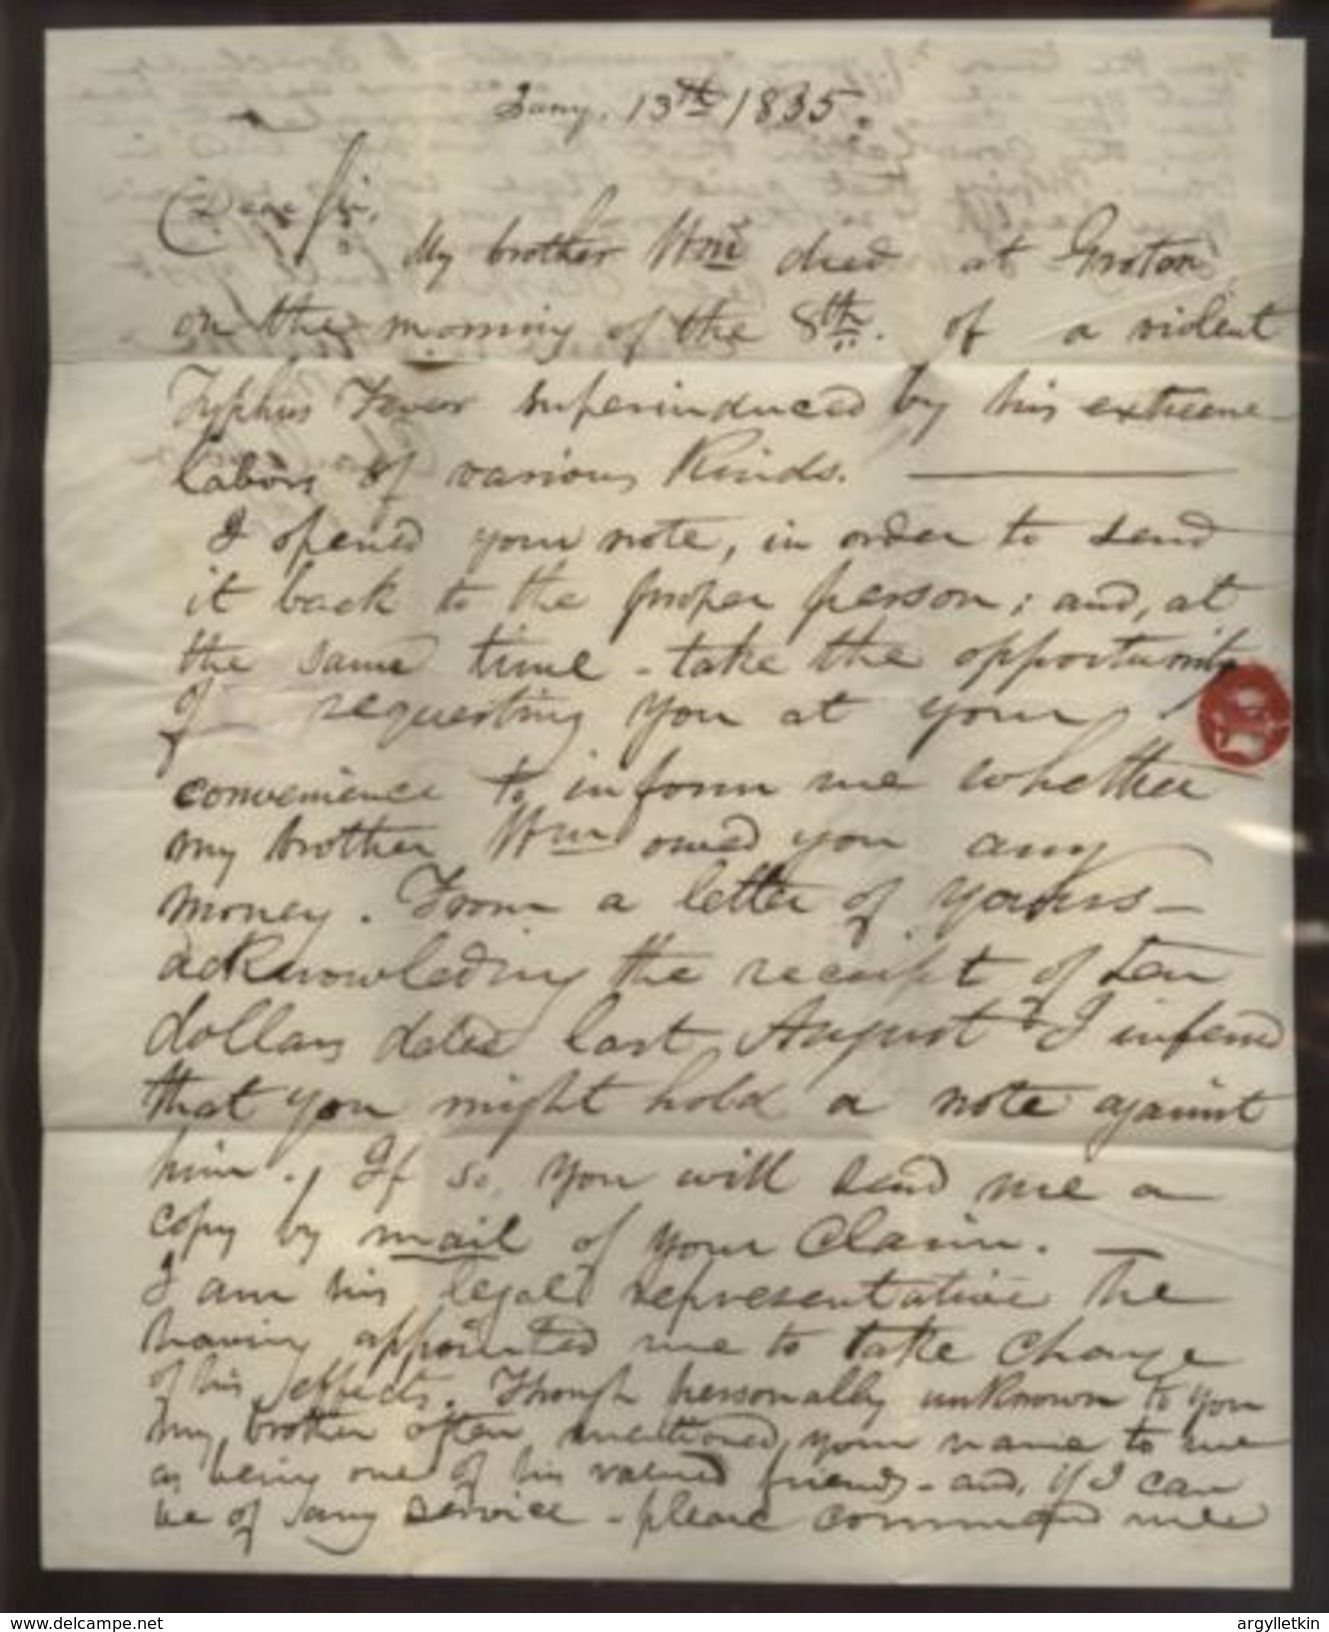 Jany. 13th 1835.
Dear Sir,
My brother Wm died at Groton
on the morning of the 8th. of a violent
Typhus Fever superinduced by his extreme
labors of various Kinds. —
I opened your note, in order to send
it back to the proper person; and, at
the same time - take the opportunity
of requesting you at your
convenience to inform me whether
my brother Wm owed you any
money. From a letter of yours —
acknowledging the receipt of ten
dollars dated last August I infered
that you might hold a note against
him. If so, you will send me a
copy by mail of your Claim. —
I am his legal representative he
having appointed me to take charge
of his effects. Though personally unknown to you
my brother often mentioned your name to me
as being one of his valued friends - and, if I can
be of any service - please command me
www.delcampe.net
argylletkin